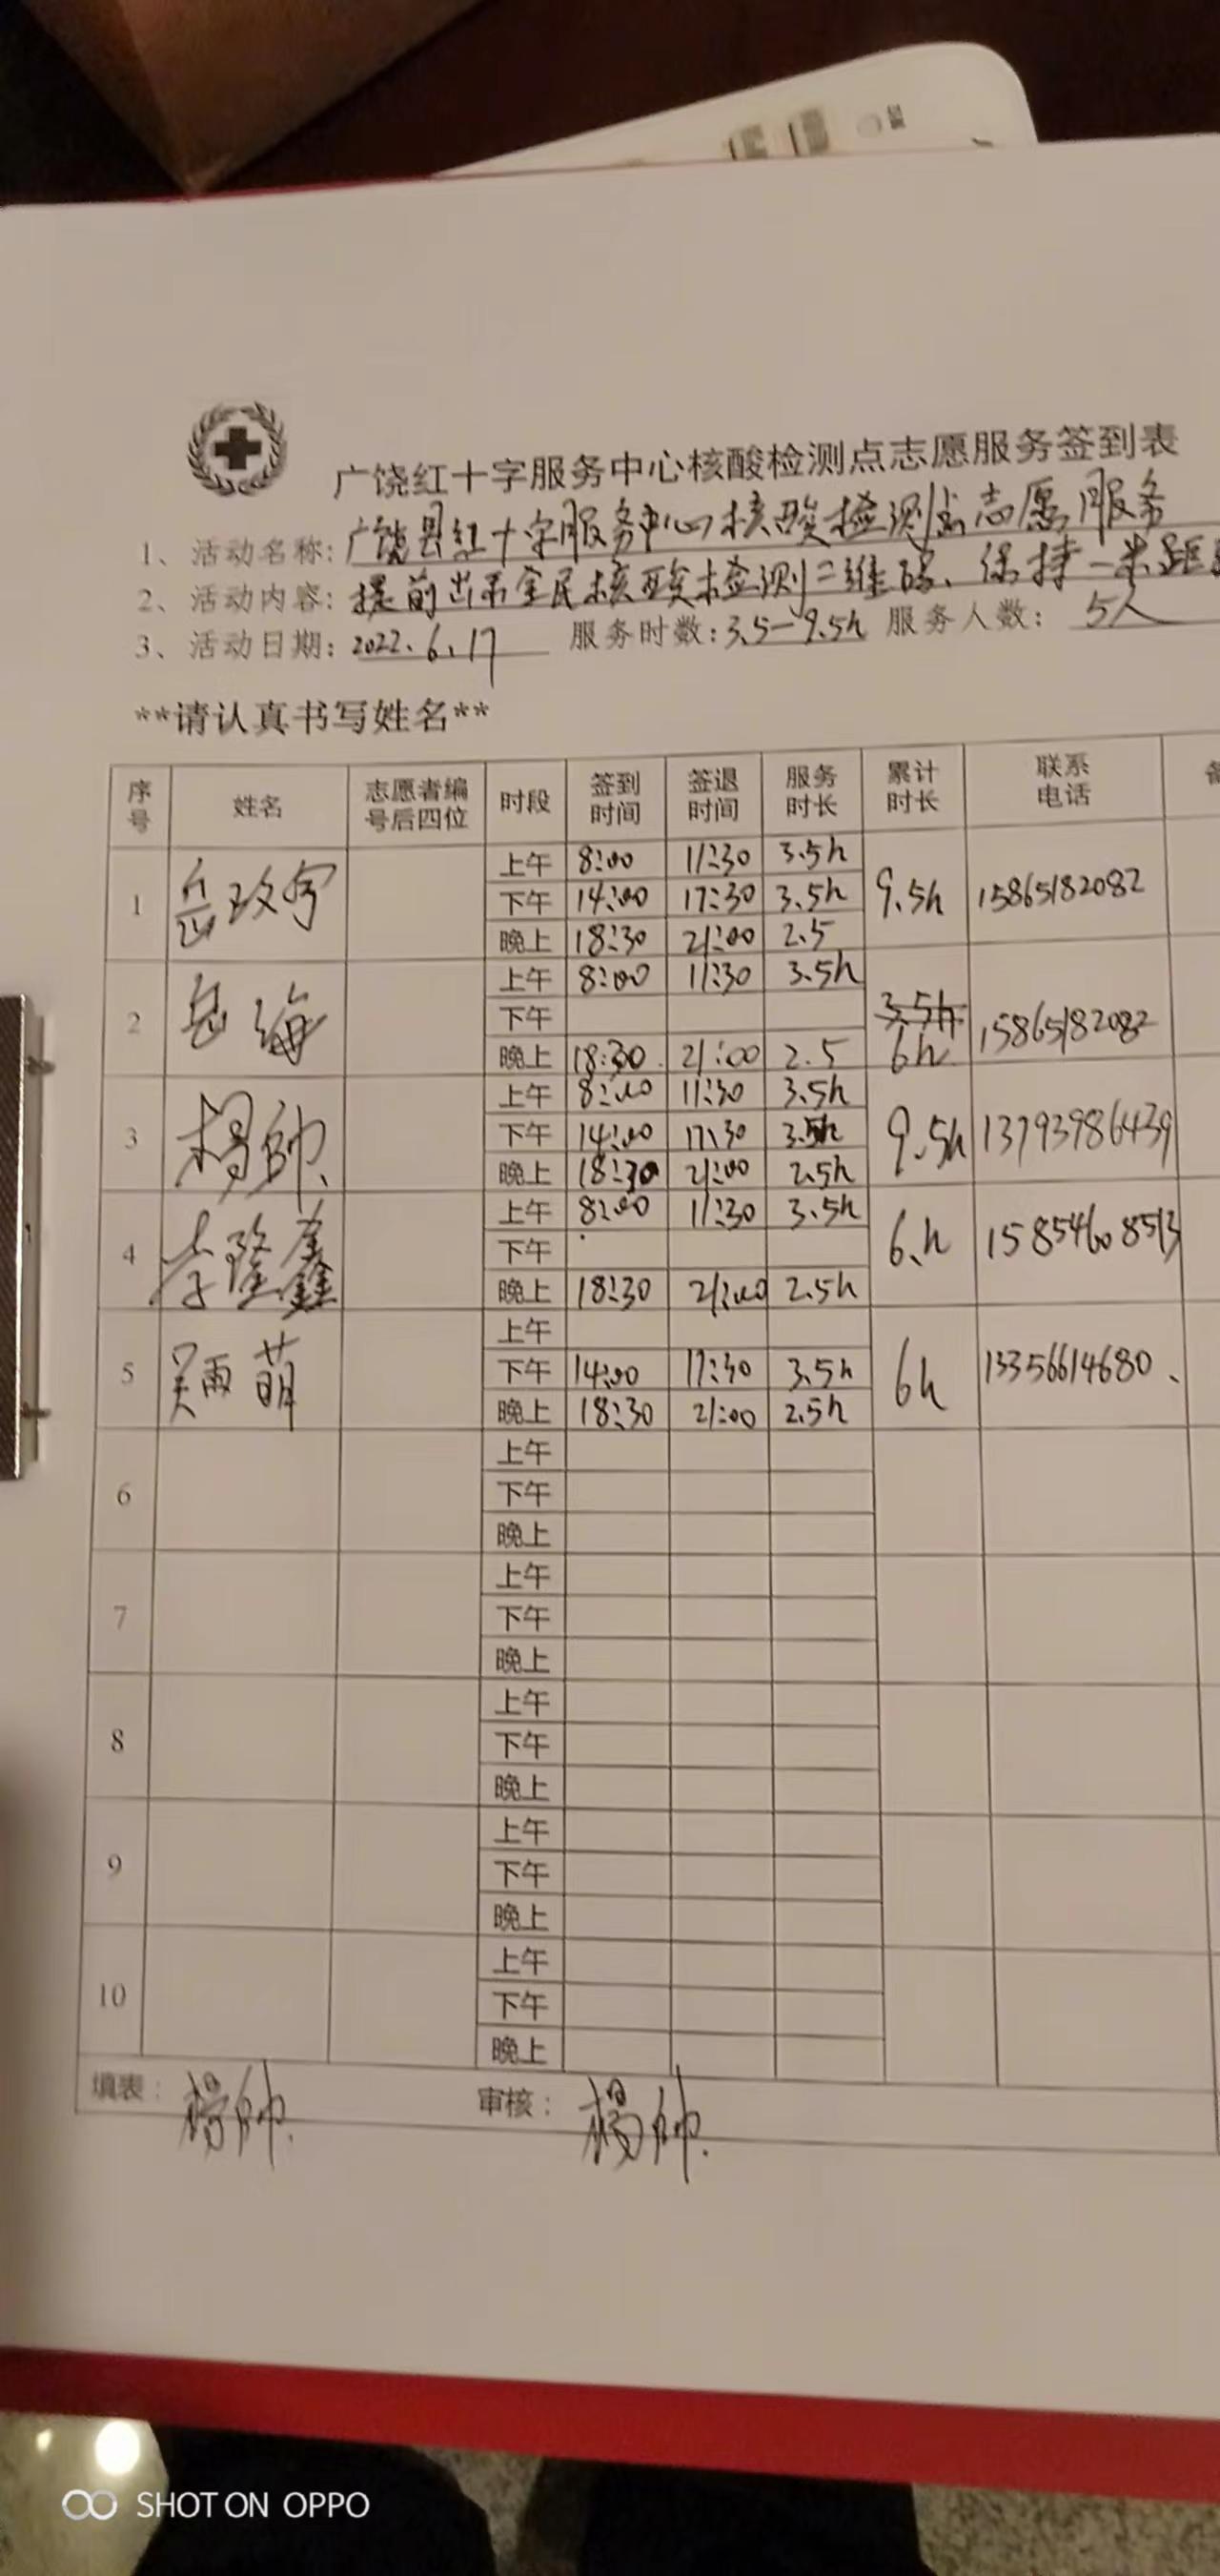 广饶红十字服务中心核酸检测点志愿服务签到表
1、活动名称: 广饶县红十字服务中心核酸检测点志愿服务
2、活动内容: 提前出示全民核酸检测二维码、保持一米距
3、活动日期: 2022.6.17 服务时数: 3.5-9.5h 服务人数: 5人
**请认真书写姓名**
序号 姓名 志愿者编号后四位 时段 签到时间 签退时间 服务时长 累计时长 联系电话 备
1 岳政宇 上午 8:00 11:30 3.5h 9.5h 15865182082
下午 14:00 17:30 3.5h
晚上 18:30 21:00 2.5
2 岳海 上午 8:00 11:30 3.5h 3.5h 6h 15865182082
下午
晚上 18:30 21:00 2.5
3 楊帥 上午 8:00 11:30 3.5h 9.5h 13793986439
下午 14:00 17:30 3.5h
晚上 18:30 21:00 2.5h
4 李隆鑫 上午 8:00 11:30 3.5h 6.h 15854608513
下午
晚上 18:30 21:00 2.5h
5 吴雨萌 上午 6h 13356614680
下午 14:00 17:30 3.5h
晚上 18:30 21:00 2.5h
6 上午
下午
晚上
7 上午
下午
晚上
8 上午
下午
晚上
9 上午
下午
晚上
10 上午
下午
晚上
填表: 楊帥 审核: 楊帥
SHOT ON OPPO